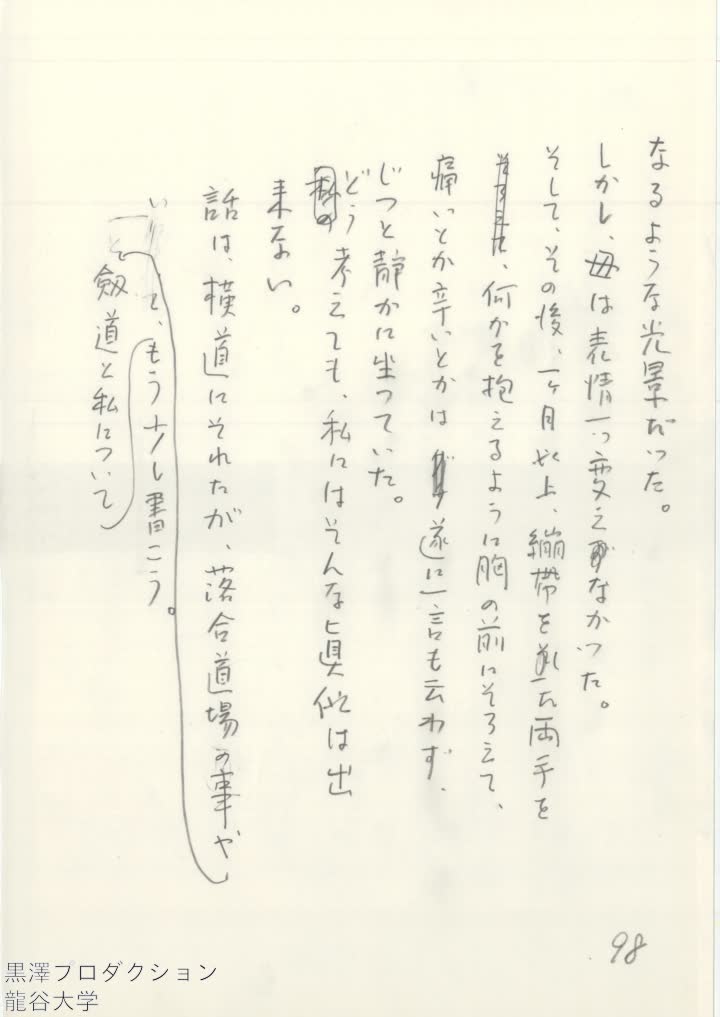 なるような光景だった。
しかし、母は表情一つ変えなかった。
そして、その後、一ヶ月以上、繃帯をした両手を
、何かを抱えるように胸の前にそろえて、
痛いとか辛いとかは遂に一言も云わず、
じっと静かに坐っていた。
どう考えても、私にはそんな眞似は出
来ない。
話は、横道にそれたが、落合道場の事や
剱道と私について
、もう少し書こう。
98
黒澤プロダクション
龍谷大学